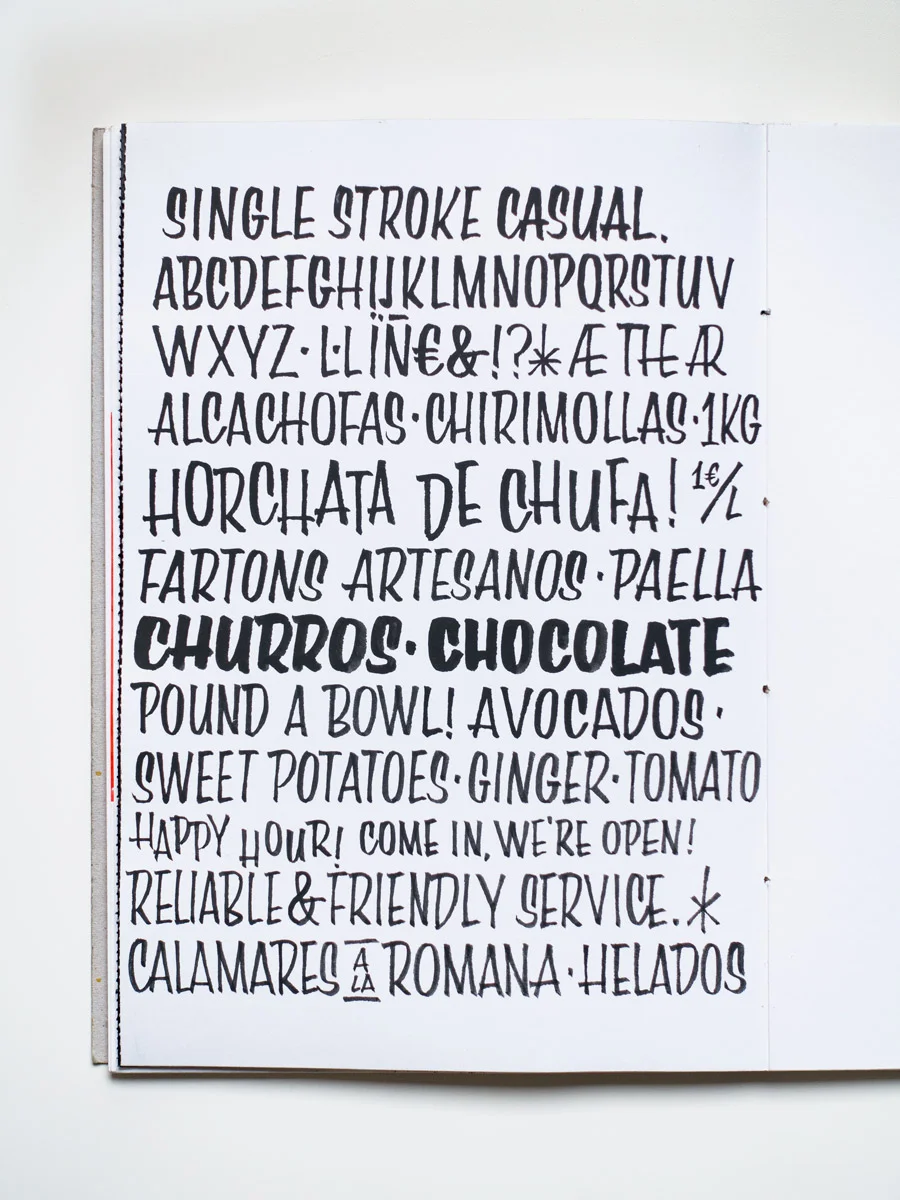 SINGLE STROKE CASUAL.
ABCDEFGHIJKLMNOPQRSTUV
WXYZ·L·LÏÑ€&!?* Æ THE AR
ALCACHOFAS·CHIRIMOLLAS·1KG
HORCHATA DE CHUFA! 1€/L
FARTONS ARTESANOS·PAELLA
CHURROS·CHOCOLATE
POUND A BOWL! AVOCADOS·
SWEET POTATOES·GINGER·TOMATO
HAPPY HOUR! COME IN, WE'RE OPEN!
RELIABLE & FRIENDLY SERVICE.*
CALAMARES A LA ROMANA·HELADOS